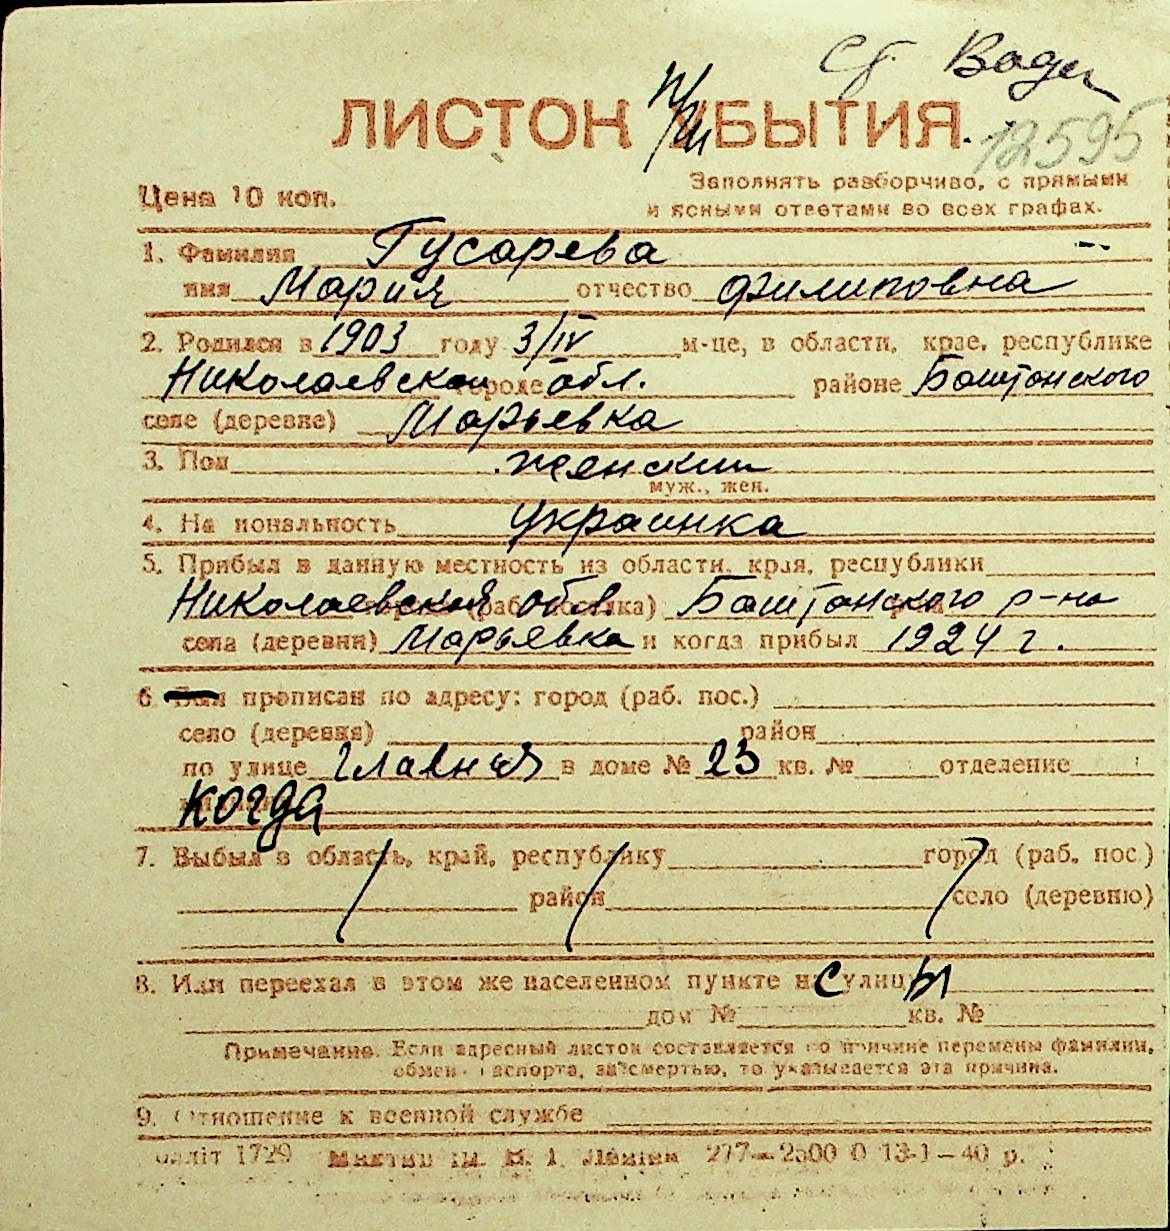 Сф. Водеи
ЛИСТОК УБЫТИЯ.
12595
Цена 10 коп.
Заполнять разборчиво, с прямыми
и ясными ответами во всех графах.
1. Фамилия Гусарева
имя Мария отчество Филиповна
2. Родился в 1903 году 3/IV м-це, в области, крае, республике
Николаевской городе обл. районе Баштанского
селе (деревне) Марьевка
3. Пол женский
муж., жен.
4. Национальность украинка
5. Прибыл в данную местность из области, края, республики
Николаевской обл. Баштанского р-на
села (деревни) Марьевка и когда прибыл 1924 г.
6 прописан по адресу: город (раб. пос.)
село (деревня) район
по улице Главная в доме № 23 кв. № отделение
когда
7. Выбыл в область, край, республику город (раб. пос.)
район село (деревню)
8. Или переехал в этом же населенном пункте с улицы
дом № кв. №
Примечание. Если адресный листок составляется по причине перемены фамилии,
обмен паспорта, за смертью, то указывается эта причина.
9. Отношение к военной службе
1729 ім. В. І. Леніна 277—2500 0 13-1—40 р.